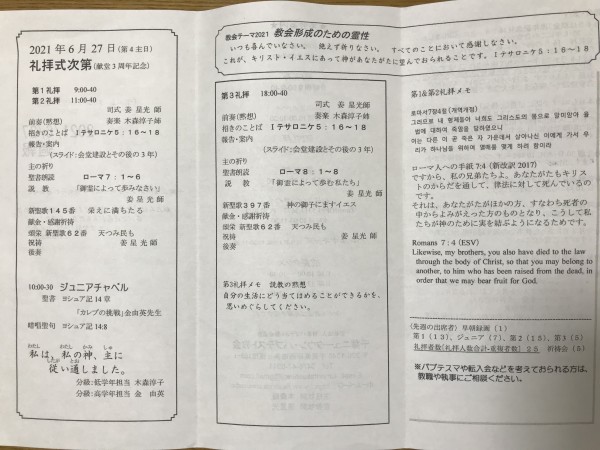 2021年6月27日(第4主日)
礼拝式次第(献堂3周年記念)
第1礼拝 9:00-40
第2礼拝 11:00-40
司式 姜 星光師
前奏(黙想) 奏楽 木森淳子師
招きのことば Ⅰテサロニケ5:16~18
報告・案内
(スライド:会堂建設とその後の3年)
主の祈り
聖書朗読 ローマ7:1~6
説 教 「御霊によって歩みなさい」
姜 星光師
新聖歌145番 栄えに満ちたる
献金・感謝祈祷
頌栄 新聖歌62番 天つみ民も
祝祷 姜 星光師
後奏
10:00-30 ジュニアチャペル
聖書 ヨシュア記14章
「カレブの挑戦」金由英先生
暗唱聖句 ヨシュア記14:8
わたし わたし かみ しゅ
私は、私の神、主に
したが とお
従い通しました。
分級:低学年担当 木森淳子
分級:高学年担当 金 由英
教会テーマ2021 教会形成のための霊性
いつも喜んでいなさい。 絶えず祈りなさい。 すべてのことにおいて感謝しなさい。
これが、キリスト・イエスにあって神があなたがたに望んでおられることです。Ⅰテサロニケ5:16~18
第3礼拝 18:00-40
司式 姜 星光師
前奏(黙想) 奏楽 木森淳子師
招きのことば Ⅰテサロニケ5:16~18
報告・案内
(スライド:会堂建設とその後の3年)
主の祈り
聖書朗読 ローマ8:1~8
説 教 「御霊によって歩む私たち」
姜 星光師
新聖歌397番 神の御子にますイエス
献金・感謝祈祷
頌栄 新聖歌62番 天つみ民も
祝祷 姜 星光師
後奏
第3礼拝メモ 説教の黙想
自分の生活にどう当てはめることができるかを、
思いめぐらしてください。
第1&第2礼拝メモ
로마서7장4절(개역개형)
그러므로 내 형제들아 너희도 그리스도의 몸으로 말미암아 율
법에 대하여 죽임을 당하였으니
이는 다른 이 곧 죽은 자 가운데서 살아나신 이에게 가서 우
리가 하나님을 위하여 열매를 맺게 하려 함이라
ローマ人への手紙7:4(新改訳2017)
ですから、私の兄弟たちよ。あなたがたもキリ
ストのからだを通して、律法に対して死んでいるの
です。
それは、あなたがたがほかの方、すなわち死者の
中からよみがえった方のものとなり、こうして私
たちが神のために実を結ぶようになるためです。
Romans 7:4 (ESV)
Likewise, my brothers, you also have died to the law
through the body of Christ, so that you may belong to
another, to him who has been raised from the dead, in
order that we may bear fruit for God.
〈先週の出席者〉早朝録画(1)
第1(13)、ジュニア(7)、第2(15)、第3(5)
礼拝者数(礼拝人数合計-重複者数)25 祈祷会(5)
※バプテスマや転入会などを考えておられる方は、
教職や執事にご相談ください。